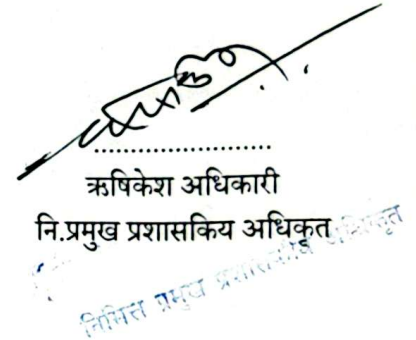 ....................
ऋषिकेश अधिकारी
नि.प्रमुख प्रशासकिय अधिकृत
निमित्त प्रमुख प्रशासकीय अधिकृत